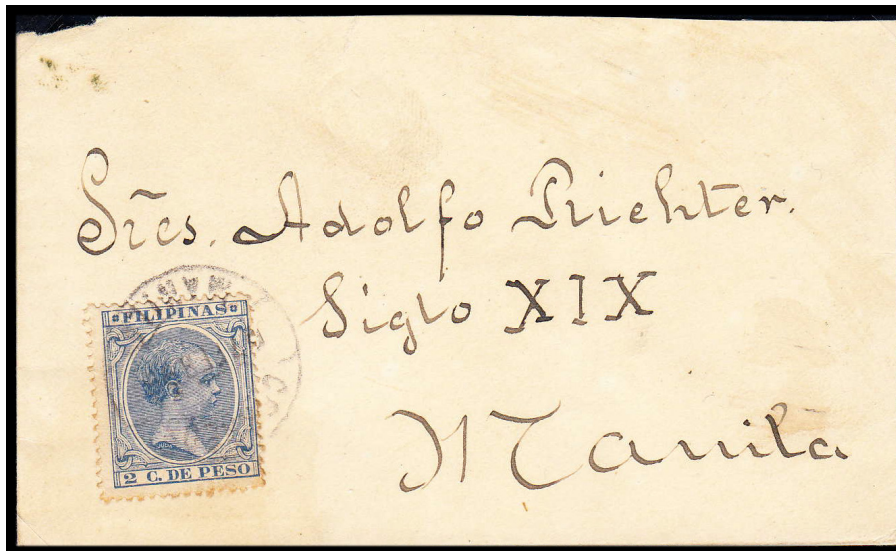 Sr̃es. Adolfo Richter.
Siglo XIX
Manila
FILIPINAS
2 C. DE PESO